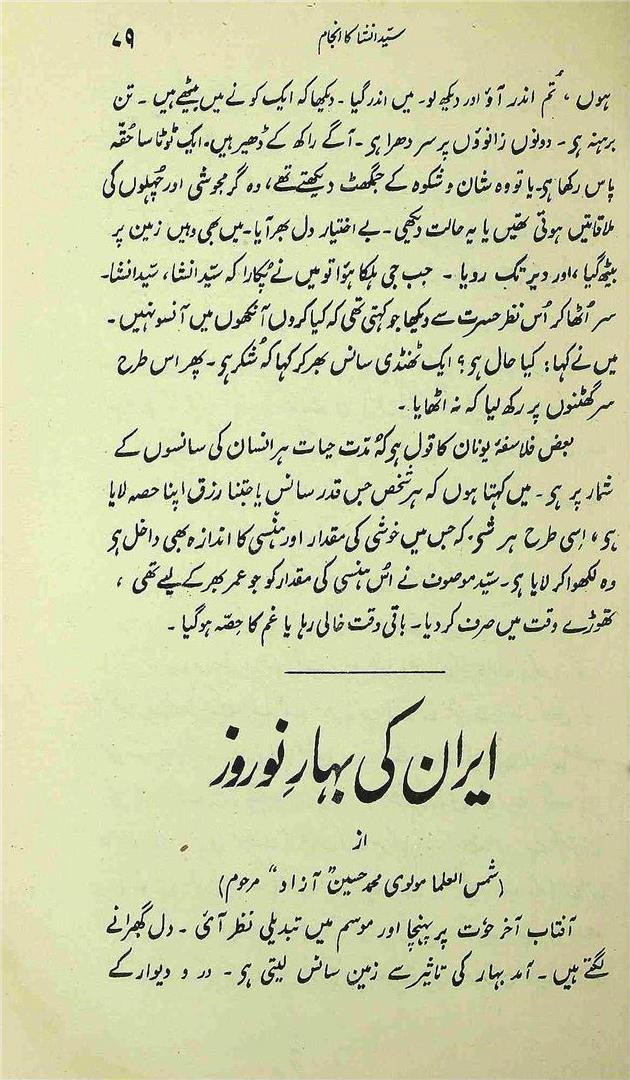 سیّد انشا کا انجام ۷۹
ہوں ، تُم اندر آؤ اور دیکھ لو۔ میں اندر گیا ۔ دیکھا کہ ایک کونے میں بیٹھے ہیں ۔ تن
برہنہ ہی ۔ دونوں زانوؤں پر سر دھرا ہی ۔ آگے راکھ کے ڈھیر ہیں۔ ایک ٹوٹا سا حقّہ
پاس رکھا ہی۔ یا تو وہ شان و شکوہ کے جمگھٹ دیکھتے تھے، وہ گرمجوشی اور چُہلوں کی
ملاقاتیں ہوتی تھیں یا یہ حالت دیکھی ۔ بے اختیار دل بھر آیا۔ میں بھی وہیں زمین پر
بیٹھ گیا ، اور دیر تک رویا ۔ جب جی ہلکا ہؤا تو میں نے پُکارا کہ سیّد انشا، سیّد انشا۔
سر اُٹھا کر اُس نظر حسرت سے دیکھا جو کہتی تھی کہ کیا کروں آنکھوں میں آنسو نہیں ۔
میں نے کہا: کیا حال ہی؟ ایک ٹھنڈی سانس بھر کر کہا کہ شکر ہی ۔ پھر اس طرح
سر گھٹنوں پر رکھ لیا کہ نہ اٹھایا ۔
بعض فلاسفۂ یونان کا قول ہی کہ مدّت حیات ہر انسان کی سانسوں کے
شمار پر ہی ۔ میں کہتا ہوں کہ ہر شخص جس قدر سانس یا جتنا رزق اپنا حصہ لایا
ہی ، اِسی طرح ہر شی کہ جس میں خوشی کی مقدار اور ہنسی کا اندازہ بھی داخل ہی
وہ لکھوا کر لایا ہی۔ سیّد موصوف نے اُس ہنسی کی مقدار کو جو عمر بھر کے لیے تھی ،
تھوڑے وقت میں صرف کر دیا۔ باقی وقت خالی رہا یا غم کا حِصّہ ہو گیا ۔
ایران کی بہارِ نوروز
از
(شمس العلما مولوی محمد حسین "آزاد" مرحوم)
آفتاب آخر حوت پر پہنچا اور موسم میں تبدیلی نظر آئی ۔ دل گھبرانے
لگتے ہیں ۔ آمد بہار کی تاثیر سے زمین سانس لیتی ہی ۔ در و دیوار کے